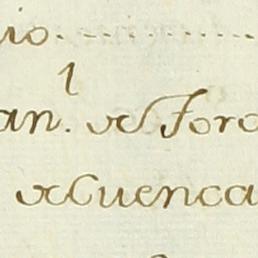 io.
an. de Toro
de Cuenca